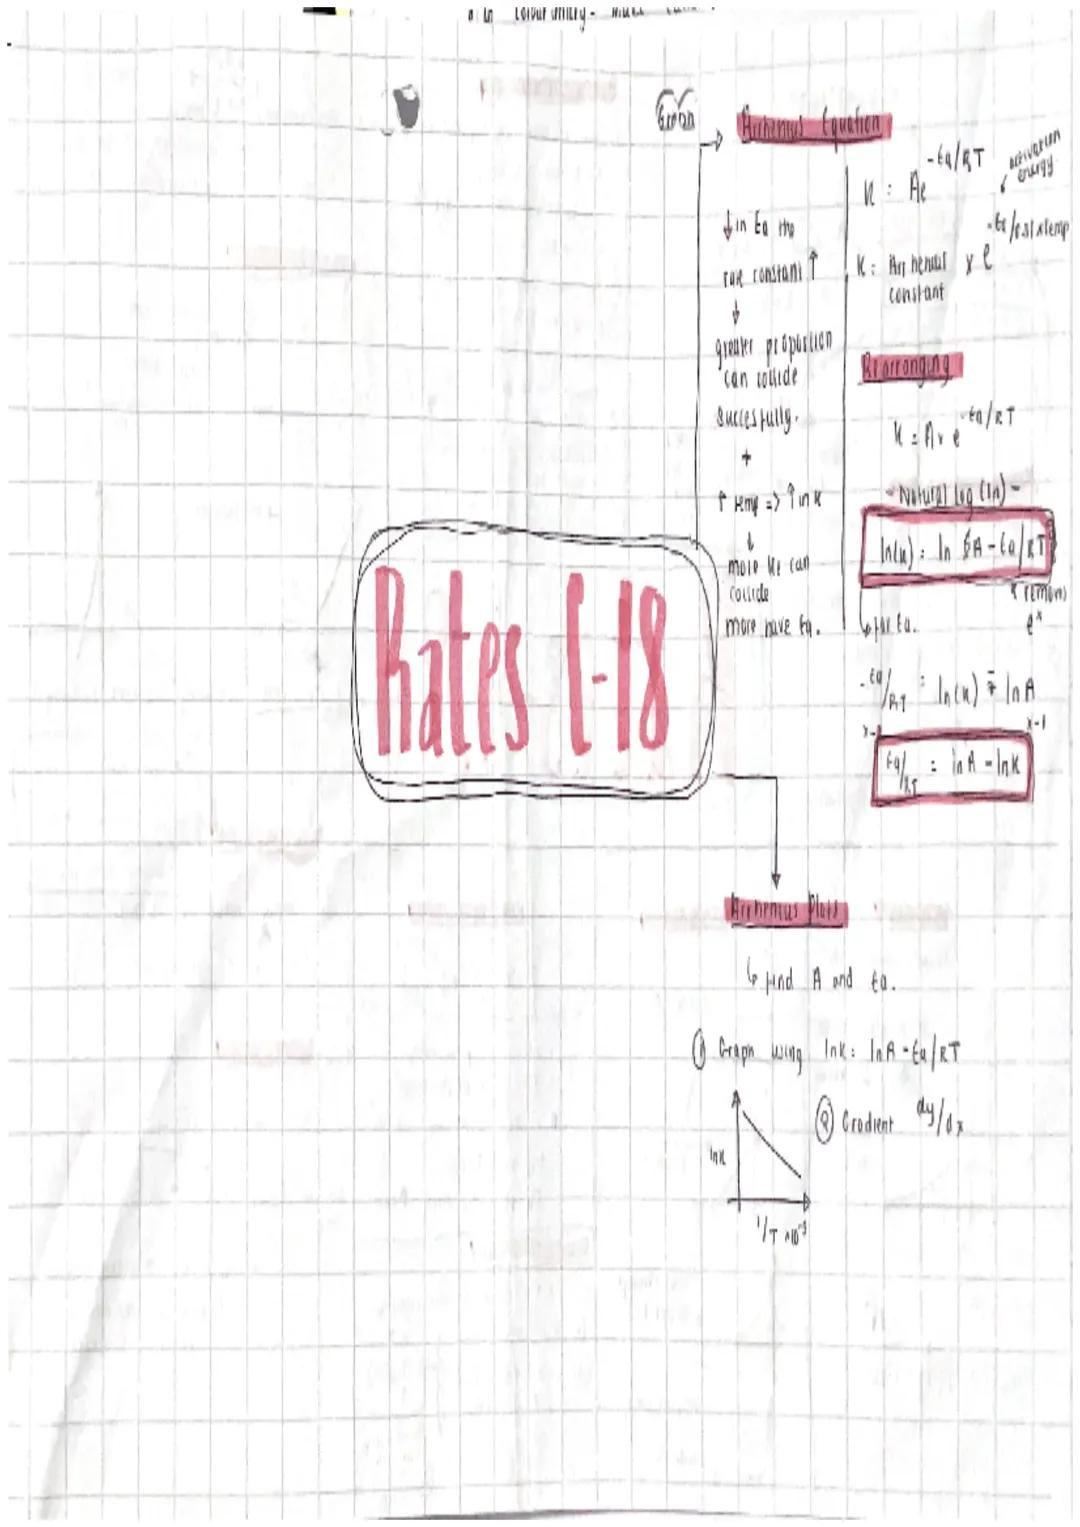 Rates C-18
Arrhenius Equation
↓ in Ea the
rate constant ↑
↓
greater proportion
can collide
succesfully.
+
↑ temp => ↑ in k
↓
more KE can
collide
more have Ea.
k = Ae^-Ea/RT
activation
energy
k = Arrhenius constant x e^-Ea/8.31xtemp
Rearranging
k = A x e^-Ea/RT
- Natural log (ln) -
ln(k) = ln A - Ea/RT
e^x
↳ for Ea.
-Ea/RT = ln(k) - ln A
x-1
x-1
Ea/RT = ln A - ln k
Arrhenius Plots
↳ find A and Ea.
① Graph using lnk = lnA - Ea/RT
② Gradient dy/dx
lnk
1/T x10^-3